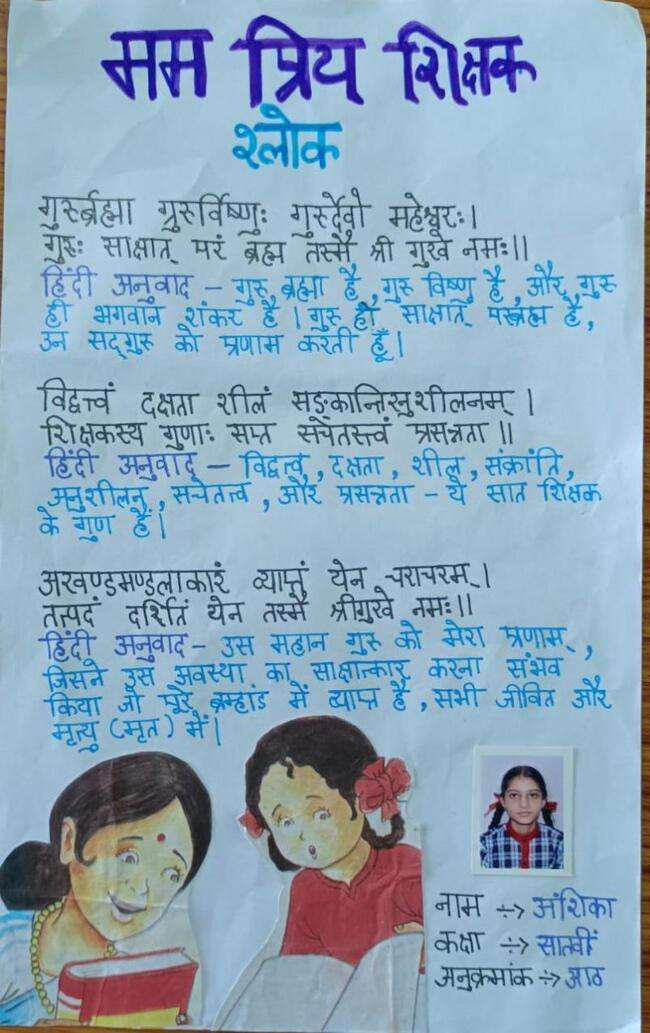 मम प्रिय शिक्षक
श्लोक
गुरुर्ब्रह्मा गुरुर्विष्णुः गुरुर्देवो महेश्वरः।
गुरुः साक्षात् परं ब्रह्म तस्मै श्री गुरवे नमः॥
हिंदी अनुवाद - गुरू ब्रह्मा है, गुरु विष्णु है, और गुरु
ही भगवान शंकर है। गुरु ही साक्षात् परब्रह्म है,
उन सद्गुरु को प्रणाम करती हूँ।
विद्वत्त्वं दक्षता शीलं सङ्कान्तिरनुशीलनम् ।
शिक्षकस्य गुणाः सप्त सचेतस्त्वं प्रसन्नता ॥
हिंदी अनुवाद् - विद्वत्व, दक्षता, शील, संक्रांति,
अनुशीलन, सचेतत्व, और प्रसन्नता - ये सात शिक्षक
के गुण हैं।
अखण्डमण्डलाकारं व्याप्तं येन चराचरम् ।
तत्पदं दर्शितं येन तस्मै श्रीगुरवे नमः॥
हिंदी अनुवाद - उस महान गुरु को मेरा प्रणाम्,
जिसने उस अवस्था का साक्षात्कार करना संभव
किया जो पूरे ब्रम्हांड में व्याप्त है, सभी जीवित और
मृत्यु (मृत) में।
नाम ÷> अंशिका
कक्षा ÷> सातवीं
अनुक्रमांक ÷> आठ